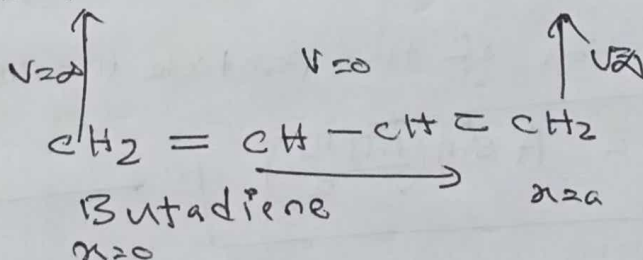 V=∞ V=0 V=∞
CH2 = CH - CH = CH2
Butadiene x=a
x=0